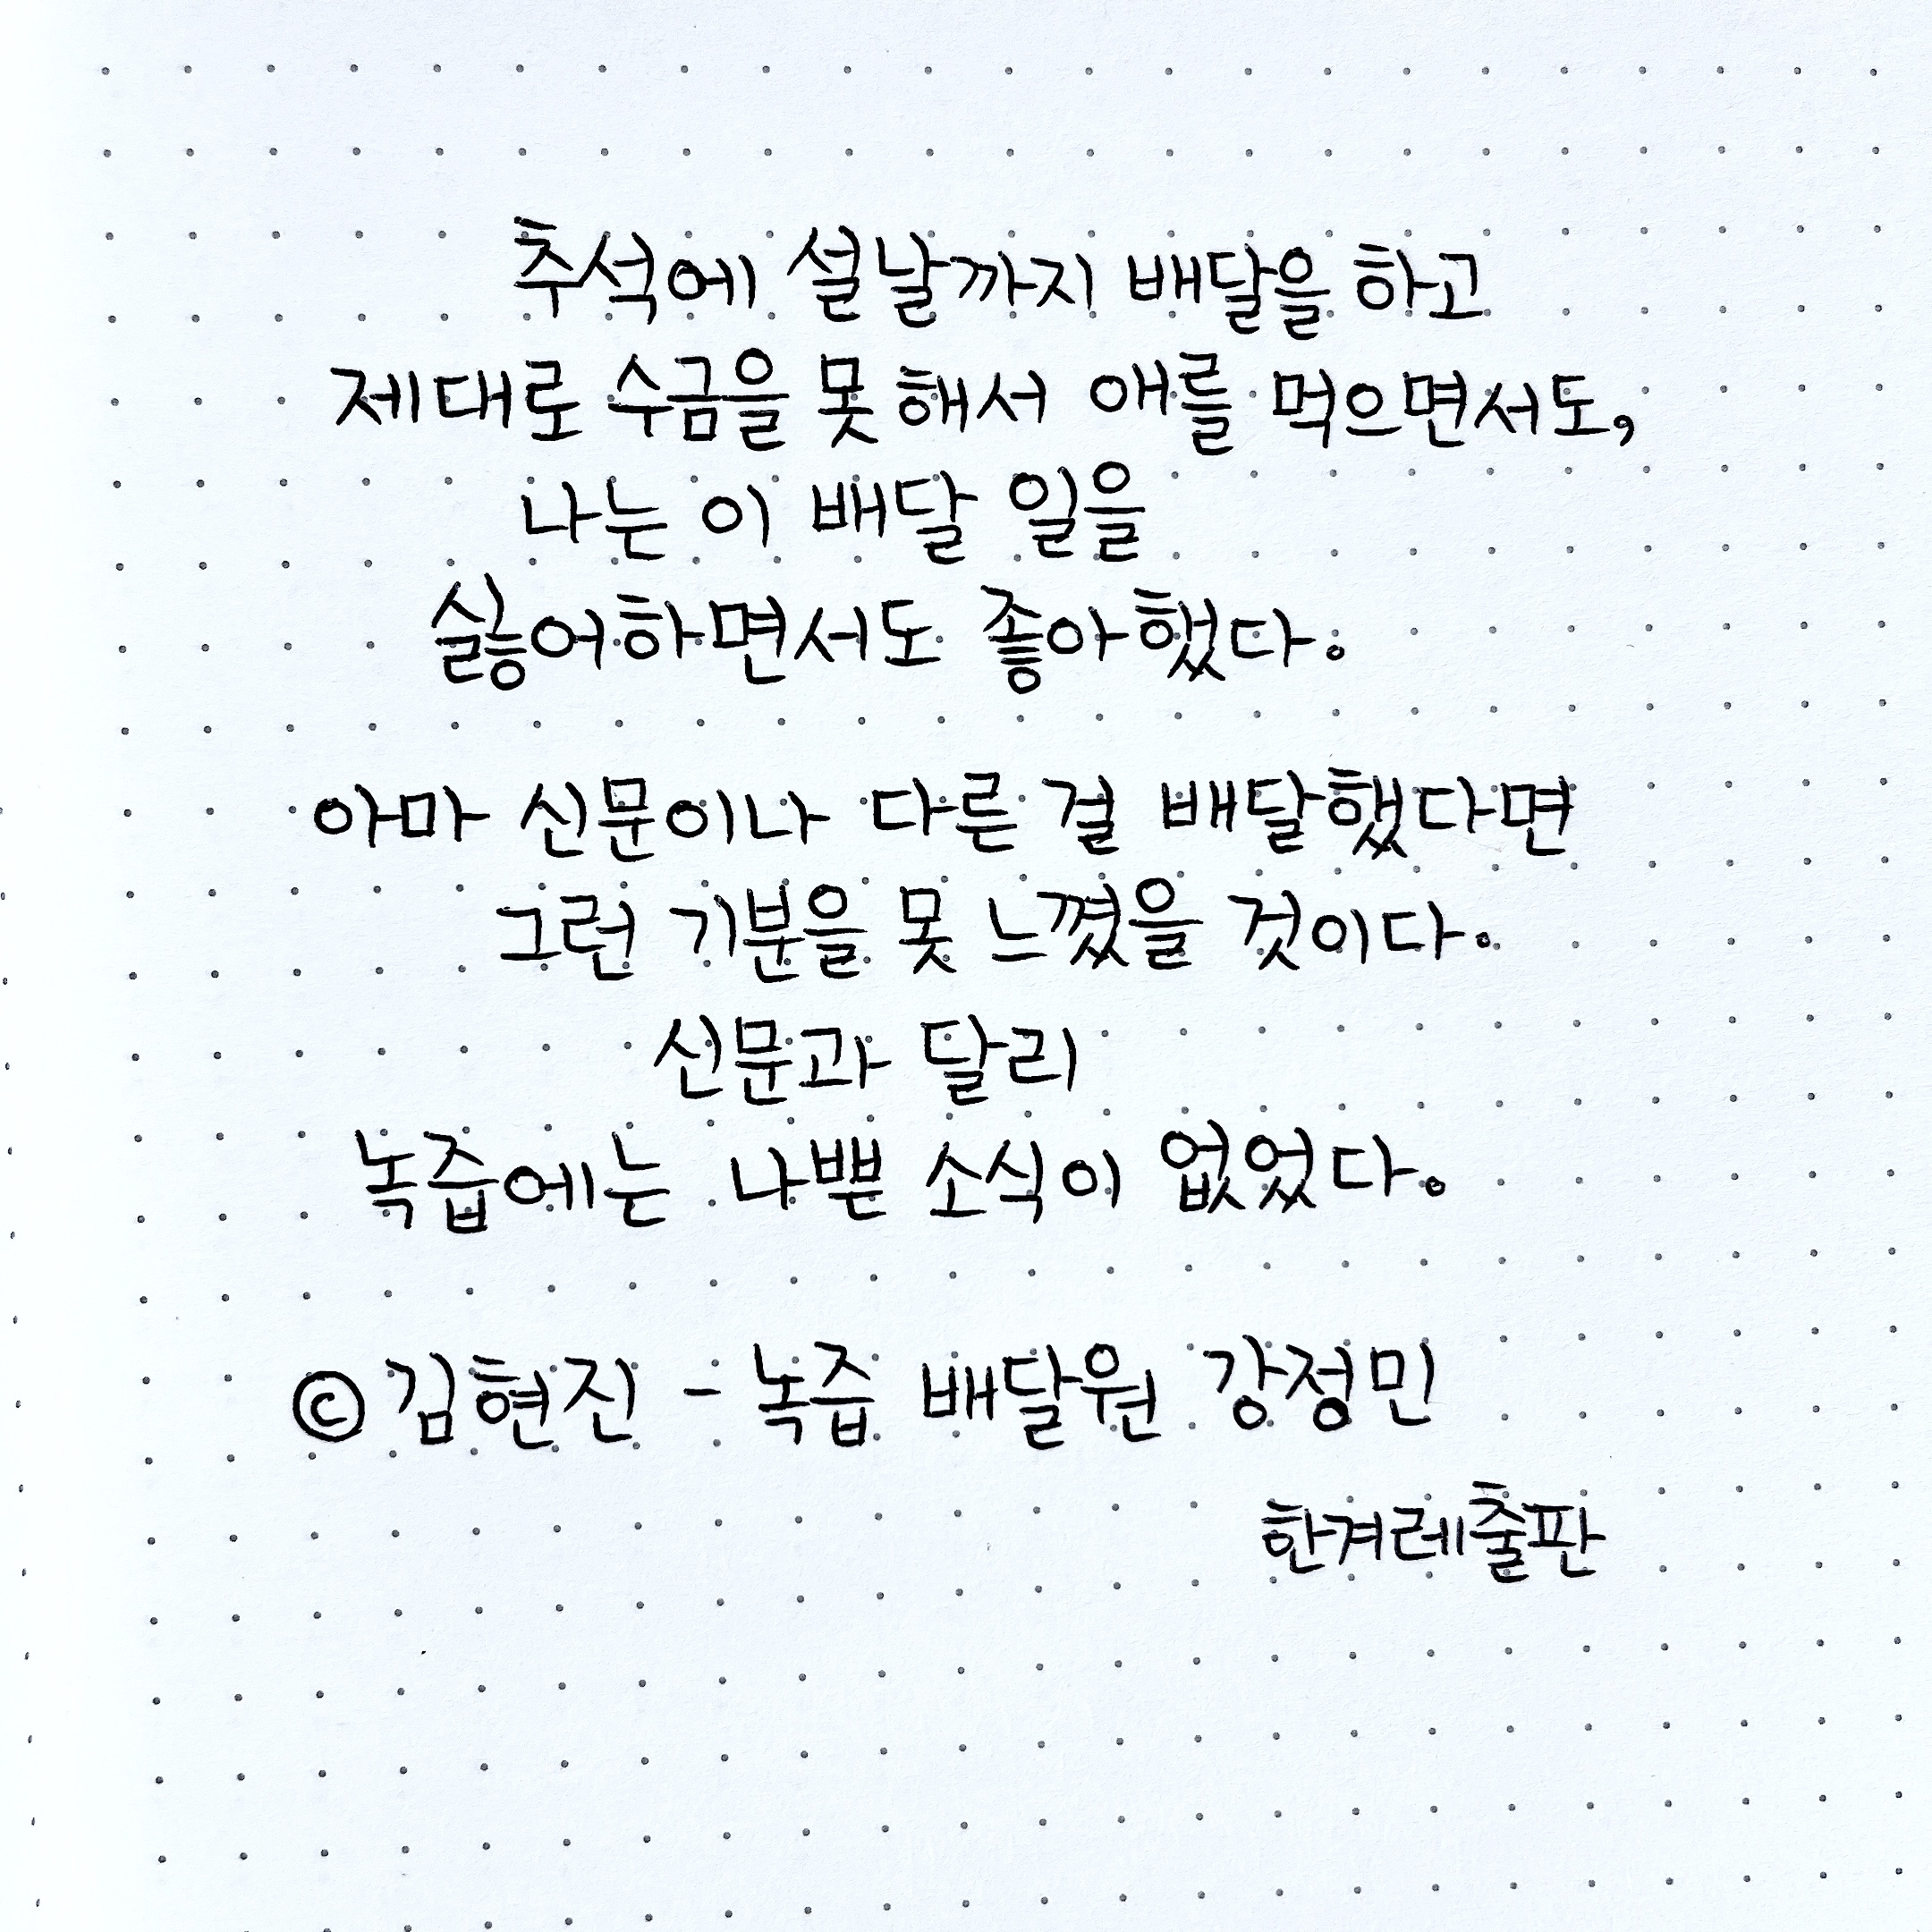 추석에 설날까지 배달을 하고
제대로 수금을 못 해서 애를 먹으면서도,
나는 이 배달 일을
싫어하면서도 좋아했다.
아마 신문이나 다른 걸 배달했다면
그런 기분을 못 느꼈을 것이다.
신문과 달리
녹즙에는 나쁜 소식이 없었다.
© 김현진 - 녹즙 배달원 강정민
한겨레출판